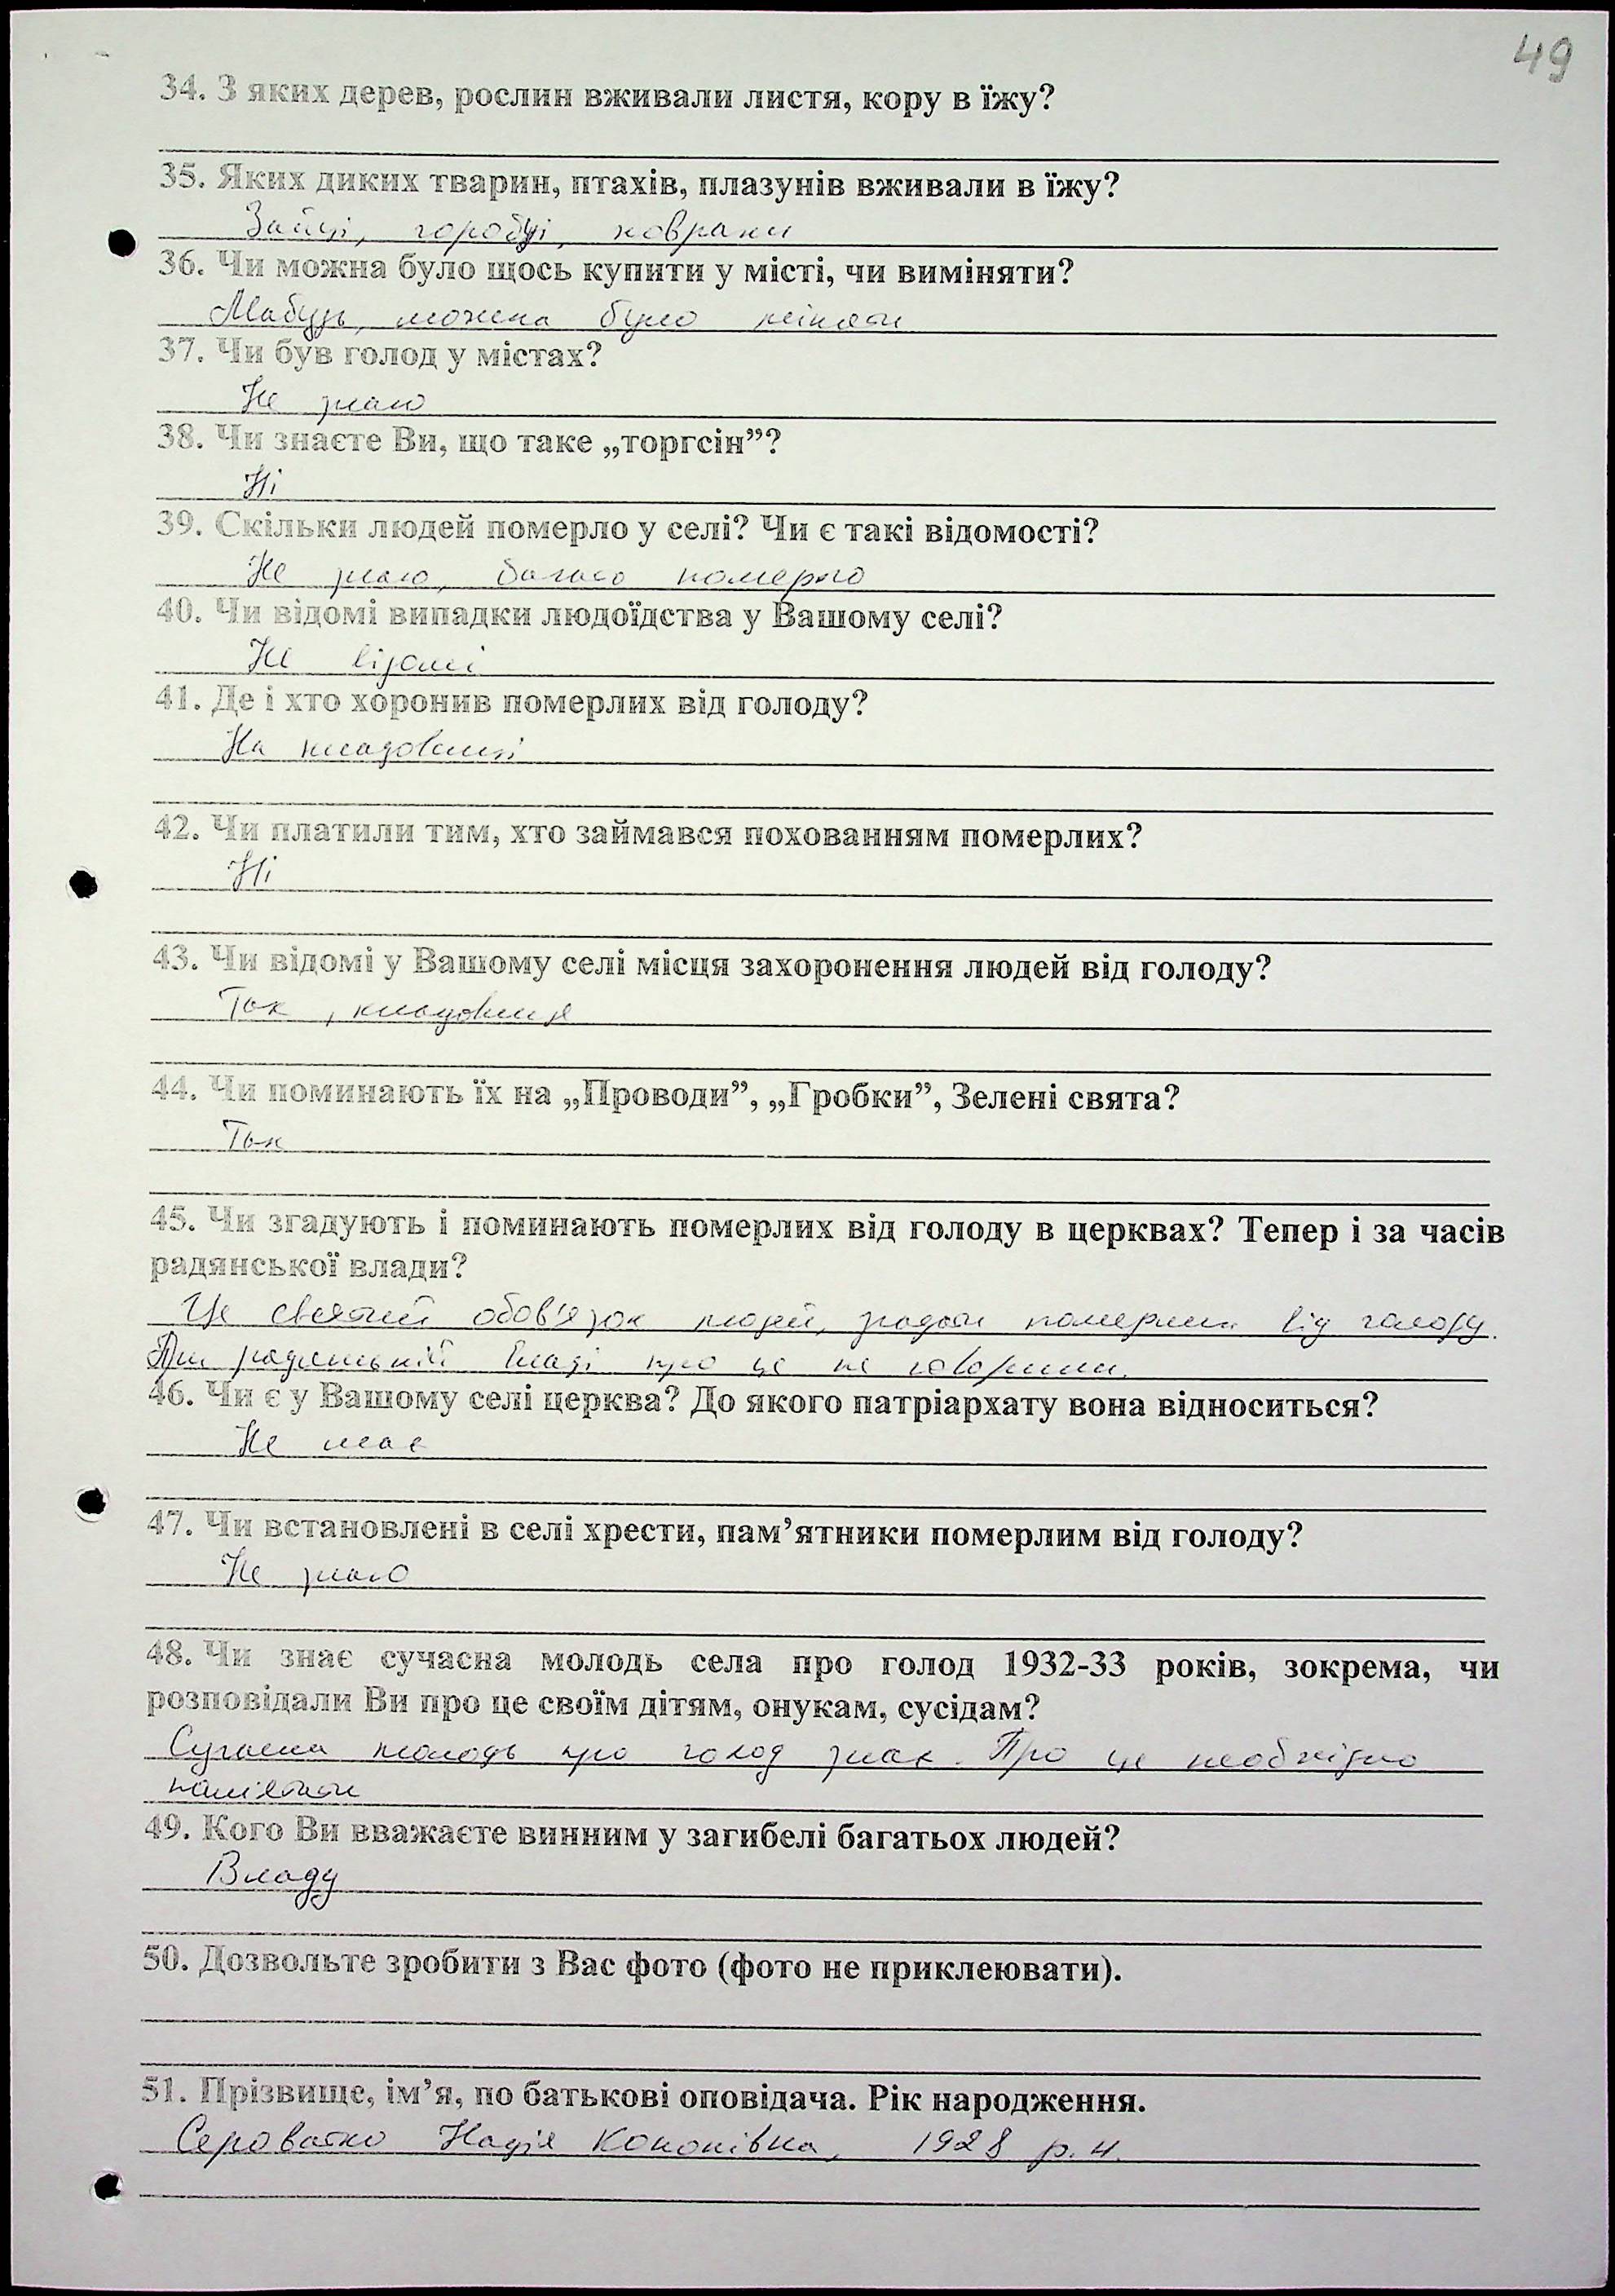 49
34. З яких дерев, рослин вживали листя, кору в їжу?
35. Яких диких тварин, птахів, плазунів вживали в їжу?
Зайці, горобці, ховрахи
36. Чи можна було щось купити у місті, чи виміняти?
Мабуть, можна було міняти
37. Чи був голод у містах?
Не знаю
38. Чи знаєте Ви, що таке „торгсін”?
Ні
39. Скільки людей померло у селі? Чи є такі відомості?
Не знаю, багато померло
40. Чи відомі випадки людоїдства у Вашому селі?
Не відомі
41. Де і хто хоронив померлих від голоду?
На кладовищі
42. Чи платили тим, хто займався похованням померлих?
Ні
43. Чи відомі у Вашому селі місця захоронення людей від голоду?
Так, кладовище
44. Чи поминають їх на „Проводи”, „Гробки”, Зелені свята?
Так
45. Чи згадують і поминають померлих від голоду в церквах? Тепер і за часів
радянської влади?
Це святий обов'язок людей, згадати померлих від голоду.
При радянській владі про це не говорили.
46. Чи є у Вашому селі церква? До якого патріархату вона відноситься?
Не має
47. Чи встановлені в селі хрести, пам’ятники померлим від голоду?
Не знаю
48. Чи знає сучасна молодь села про голод 1932-33 років, зокрема, чи
розповідали Ви про це своїм дітям, онукам, сусідам?
Сучасна молодь про голод знає. Про це необхідно
пам'ятати
49. Кого Ви вважаєте винним у загибелі багатьох людей?
Владу
50. Дозвольте зробити з Вас фото (фото не приклеювати).
51. Прізвище, ім’я, по батькові оповідача. Рік народження.
Сероватко Надія Кононівна, 1928 р.н.